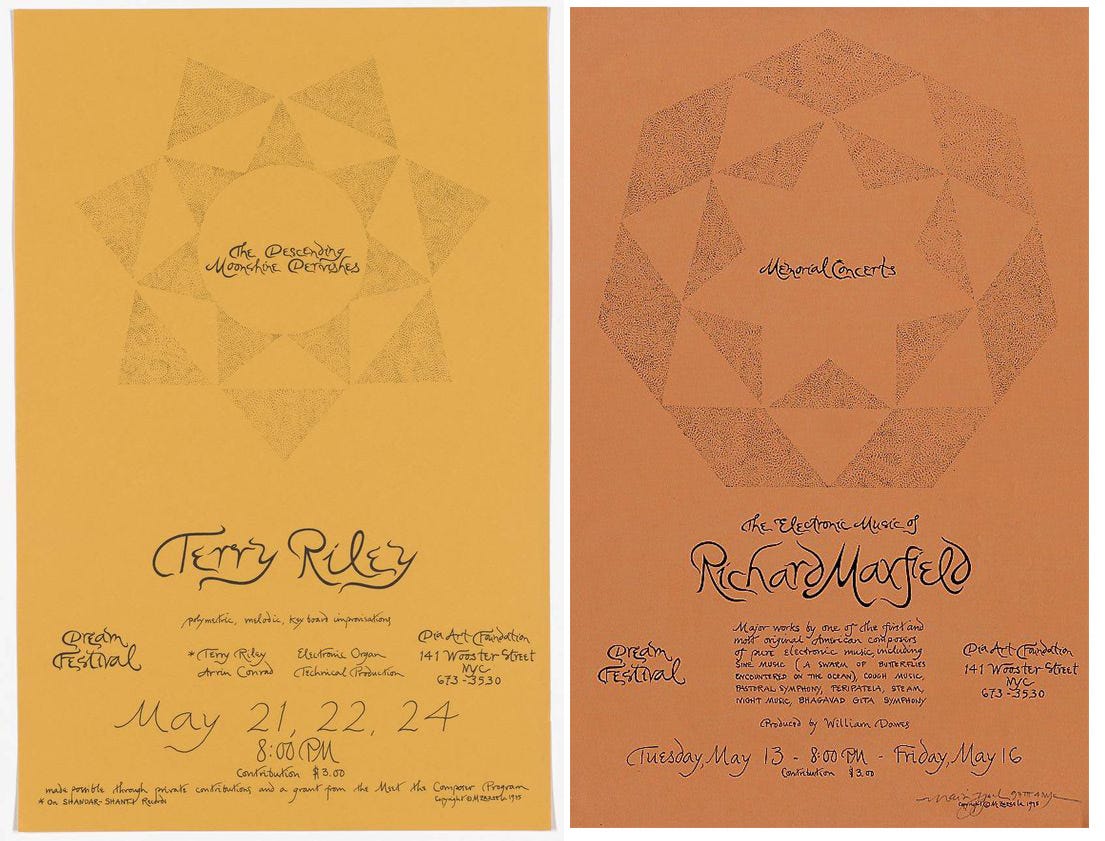 The Descending
Moonshine Dervishes
Terry Riley
polymetric, melodic, keyboard improvisations
Dream
Festival
*Terry Riley Electronic Organ
Arrin Conrad Technical Production
Dia Art Foundation
141 Wooster Street
NYC
673-3530
May 21, 22, 24
8:00 PM
Contribution $3.00
made possible through private contributions and a grant from the Meet the Composer Program
* On SHANDAR-SHANTI Records
Copyright © M Zazeela 1975
Memorial Concerts
The Electronic Music of
Richard Maxfield
Major works by one of the first and
most original American composers
of pure electronic music, including
SINE MUSIC (A SWARM OF BUTTERFLIES
ENCOUNTERED ON THE OCEAN), COUGH MUSIC,
PASTORAL SYMPHONY, PERIPATEIA, STEAM,
NIGHT MUSIC, BHAGAVAD GITA SYMPHONY
Produced by William Dawes
Dream
Festival
Dia Art Foundation
141 Wooster Street
NYC
673-3530
Tuesday, May 13 - 8:00 PM - Friday, May 16
Contribution $3.00
Copyright © M Zazeela 1975